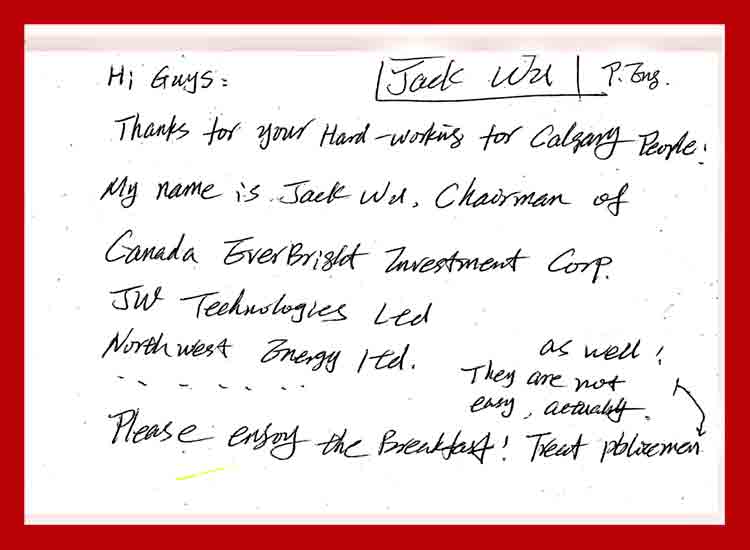 Hi Guys: Jack Wu P. Eng.
Thanks for your Hard-working for Calgary People!
My name is Jack Wu, Chairman of
Canada EverBright Investment Corp.
JW Technologies Ltd
Northwest Energy ltd.
Please enjoy the Breakfast! Treat policemen
as well!
They are not
easy, actually.